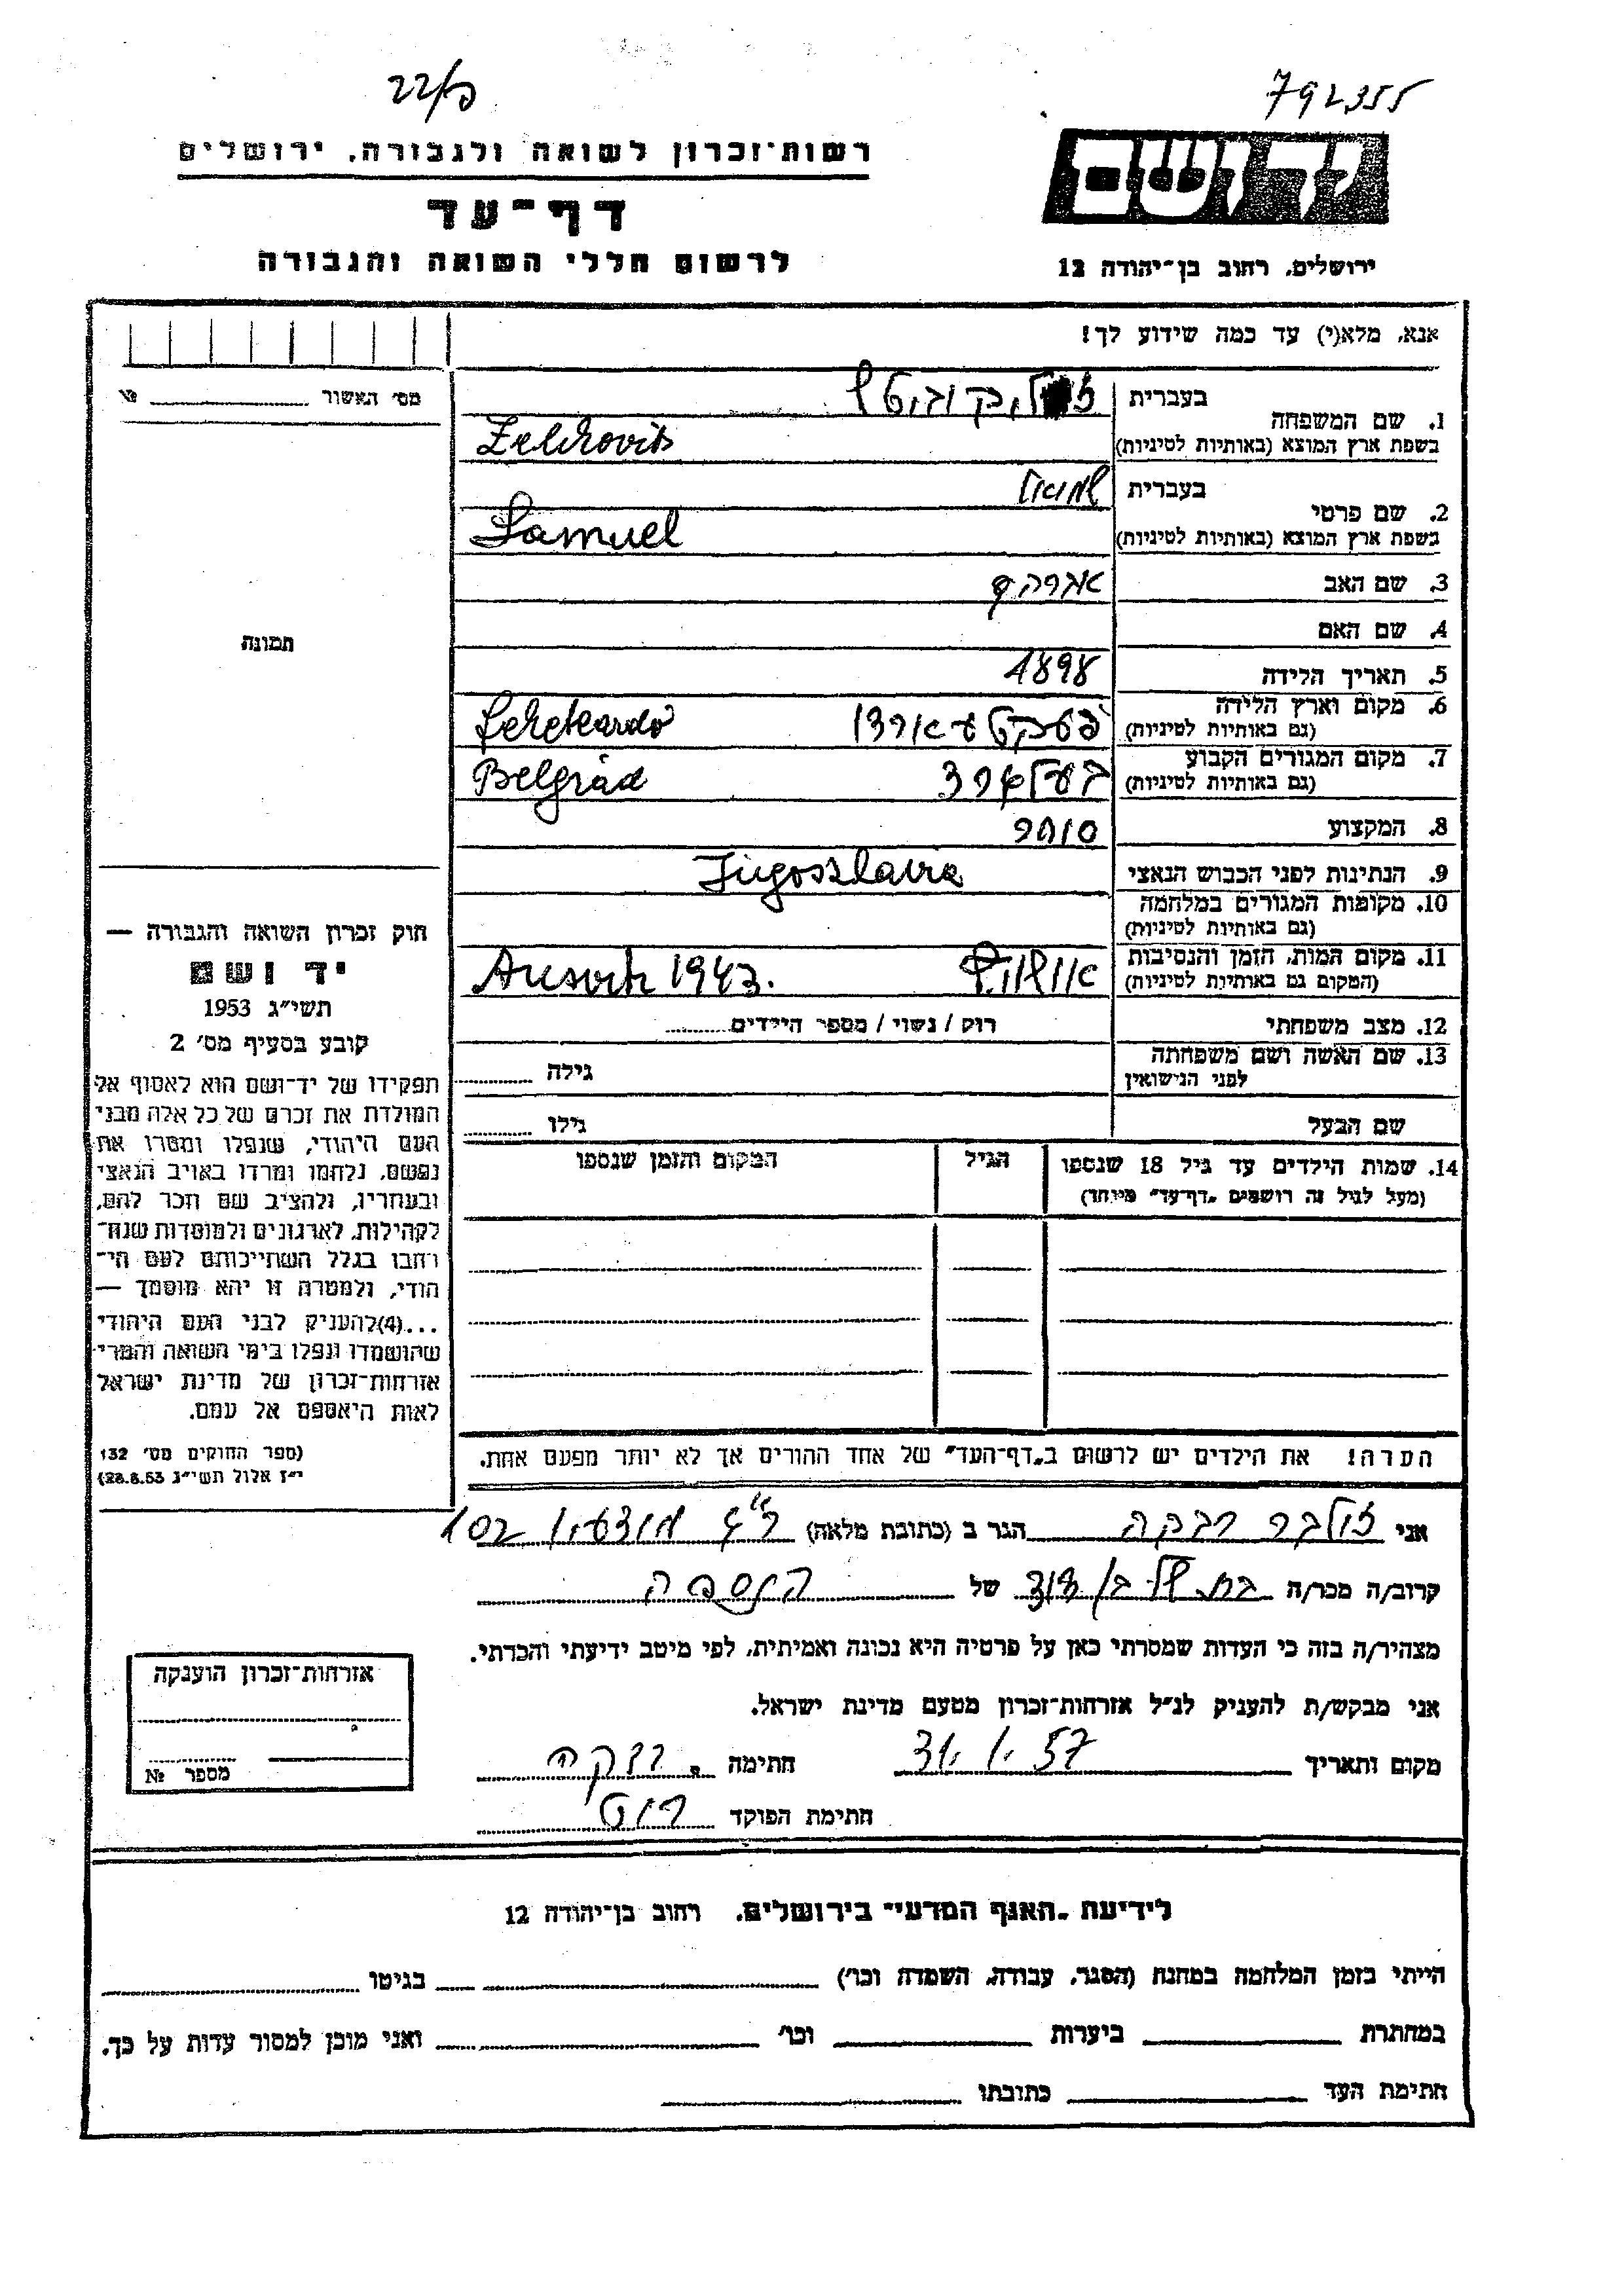 792355
רשות־זכרון לשואה ולגבורה, ירושלים
ידושם
דף־עד
ירושלים, רחוב בן־יהודה 12
לרשום חללי השואה והגבורה
אנא, מלא(י) עד כמה שידוע לך!
מס׳ האשור № 
1. שם המשפחה
בעברית
בשפת ארץ המוצא (באותיות לטיניות) Zelkovits
2. שם פרטי
בעברית שמואל
בשפת ארץ המוצא (באותיות לטיניות) Samuel
3. שם האב אברהם
4. שם האם
תמונה
5. תאריך הלידה 1898
6. מקום וארץ הלידה
(גם באותיות לטיניות)
7. מקום המגורים הקבוע Belgrád
(גם באותיות לטיניות)
8. המקצוע סוחר
9. הנתינות לפני הכבוש הנאצי Jugoszlavia
10. מקומות המגורים במלחמה
(גם באותיות לטיניות)
11. מקום המות, הזמן והנסיבות אושוויץ Ausvitz 1943.
(המקום גם באותיות לטיניות)
12. מצב משפחתי רוק / נשוי / מספר הילדים
13. שם האשה ושם משפחתה
לפני הנישואין גילה
שם הבעל גילו
14. שמות הילדים עד גיל 18 שנספו
(מעל לגיל זה רושמים „דף־עד״ מיוחד)
הגיל
המקום והזמן שנספו
חוק זכרון השואה והגבורה —
יד ושם
תשי״ג 1953
קובע בסעיף מס׳ 2
תפקידו של יד־ושם הוא לאסוף אל
המולדת את זכרם של כל אלה מבני
העם היהודי, שנפלו ומסרו את
נפשם, נלחמו ומרדו באויב הנאצי
ובעוזריו, ולהציב שם וזכר להם,
לקהילות, לארגונים ולמוסדות שנח־
רבו בגלל השתייכותם לעם הי־
הודי, ולמטרה זו יהא מוסמך —
...(4)להעניק לבני העם היהודי
שהושמדו ונפלו בימי השואה והמרי
אזרחות־זכרון של מדינת ישראל
לאות היאספם אל עמם.
(ספר החוקים מס׳ 132
י״ז אלול תשי״ג 28.8.53)
הערה! את הילדים יש לרשום ב„דף־העד״ של אחד ההורים אך לא יותר מפעם אחת.
אני זילבר רבקה הגר ב (כתובת מלאה)
קרוב/ה מכר/ה בת של בן דוד של הנספה
מצהיר/ה בזה כי העדות שמסרתי כאן על פרטיה היא נכונה ואמיתית, לפי מיטב ידיעתי והכרתי.
אני מבקש/ת להעניק לנ״ל אזרחות־זכרון מטעם מדינת ישראל.
מקום ותאריך 31.1.57 חתימה
חתימת הפוקד
אזרחות־זכרון הוענקה
מספר №
לידיעת „האגף המדעי״ בירושלים, רחוב בן־יהודה 12
הייתי בזמן המלחמה במחנה (הסגר, עבודה, השמדה וכו׳) בגיטו
במחתרת ביערות וכו׳ ואני מוכן למסור עדות על כך.
חתימת העד כתובתו